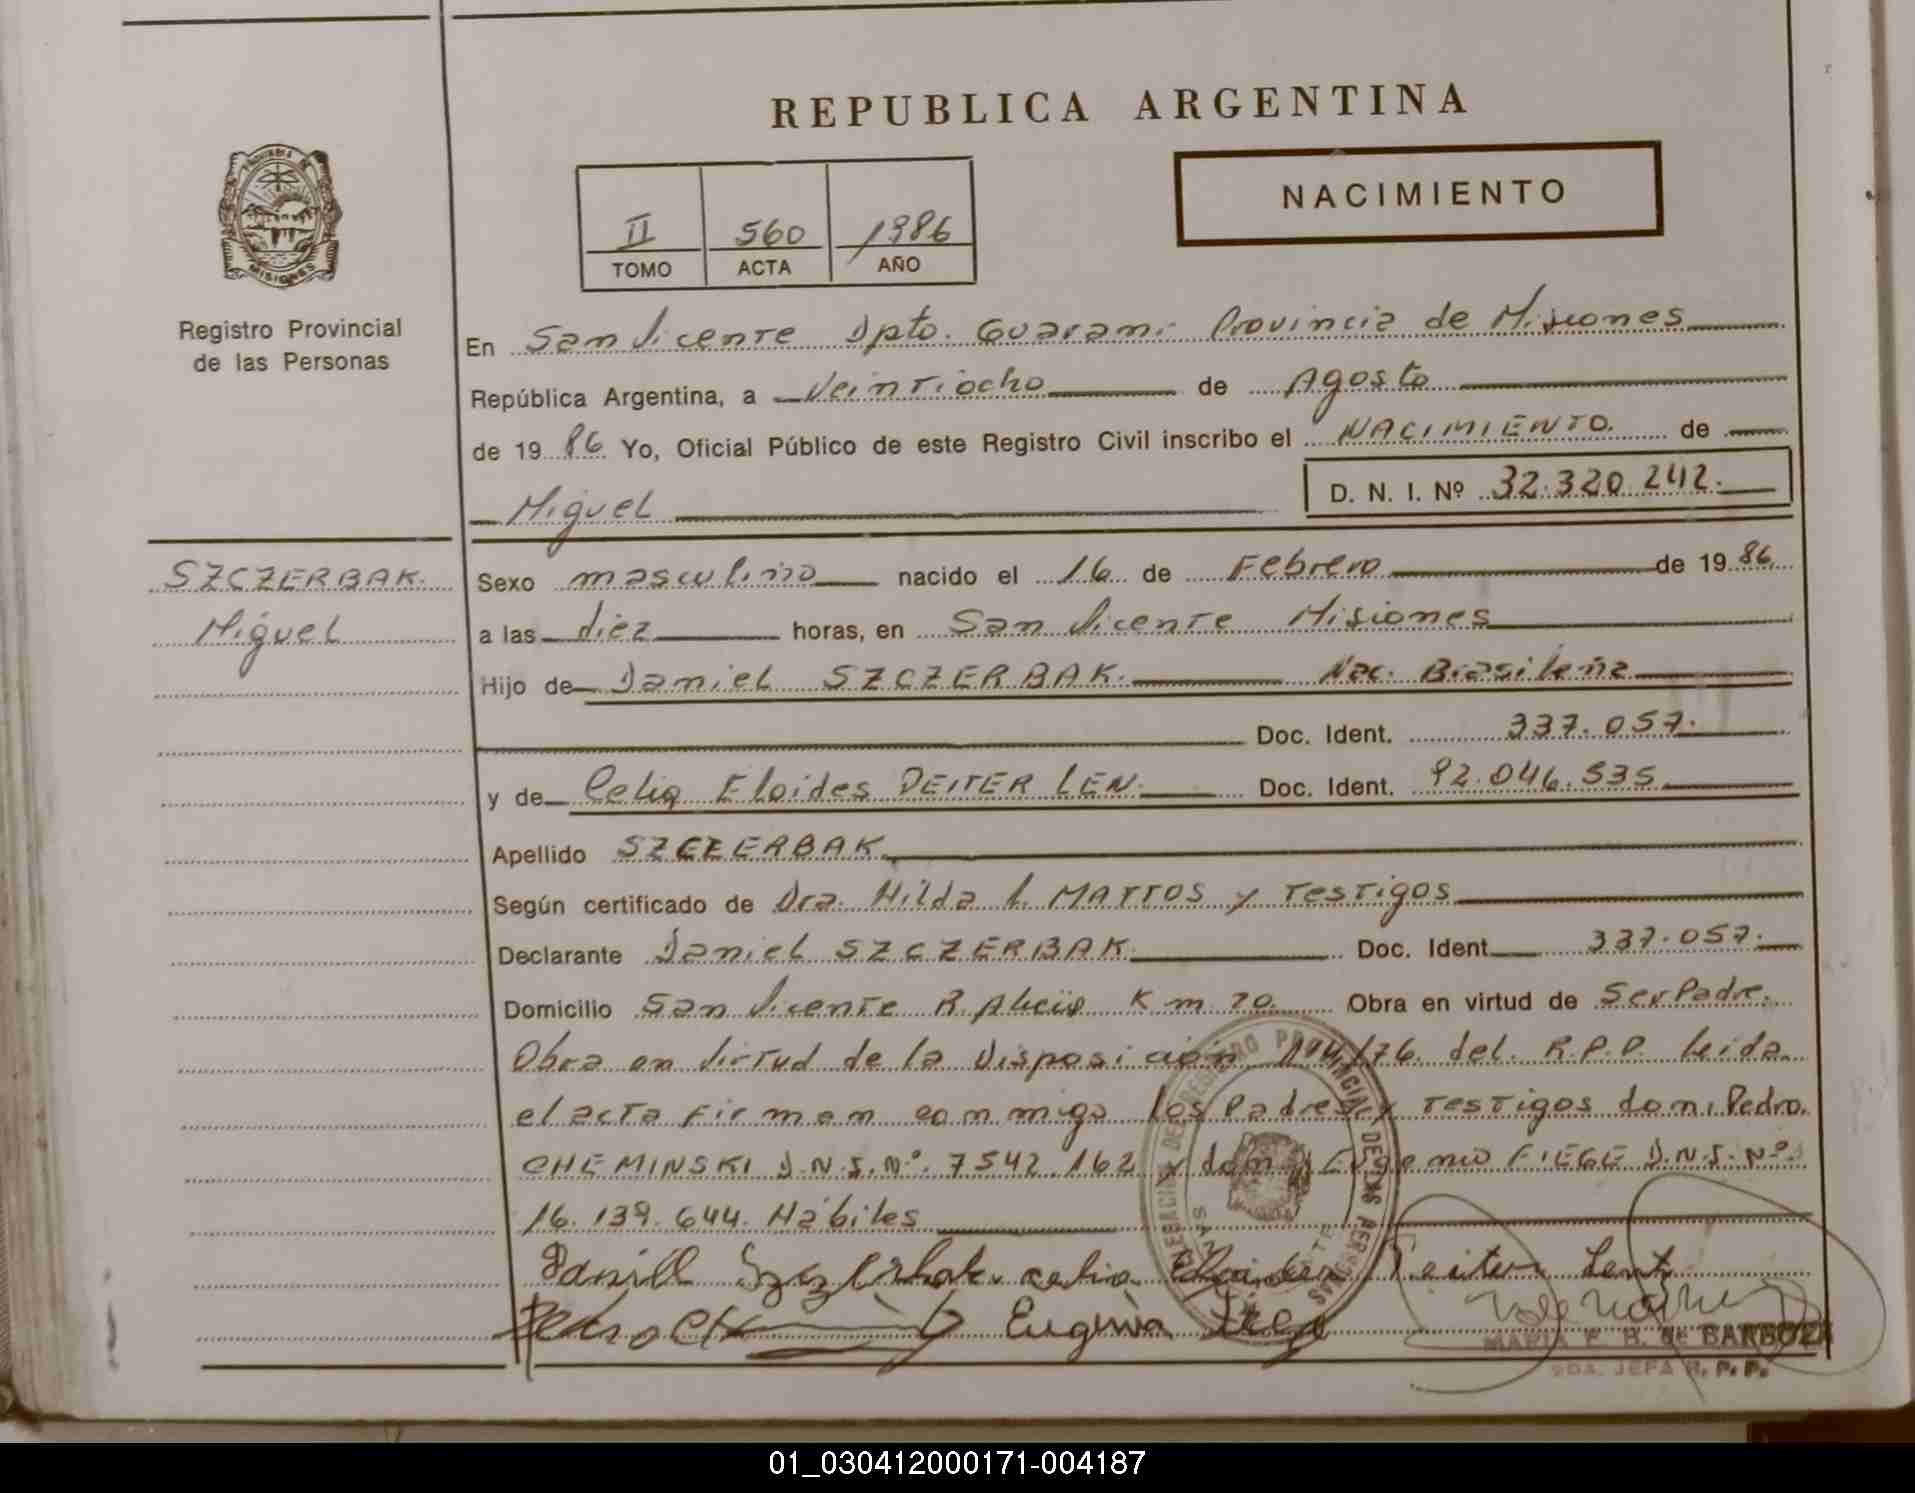 REPUBLICA ARGENTINA
NACIMIENTO
II 560 1986
TOMO ACTA AÑO
PROVINCIA DE
MISIONES
Registro Provincial
de las Personas
En San Vicente Dpto. Guarani Provincia de Misiones
República Argentina, a Veintiocho de Agosto
de 1986 Yo, Oficial Público de este Registro Civil inscribo el NACIMIENTO de
D. N. I. Nº 32.320.242.
Miguel
SZCZERBAK.
Miguel
Sexo masculino nacido el 16 de Febrero de 1986
a las diez horas, en San Vicente Misiones
Hijo de Daniel SZCZERBAK. Nac. Brasileña
Doc. Ident. 337.057.
y de Celia Eloides DEITER LEN. Doc. Ident. 92.046.535
Apellido SZCZERBAK
Según certificado de Dra. Hilda L. MATTOS y Testigos
Declarante Daniel SZCZERBAK. Doc. Ident. 337.057.
Domicilio San Vicente Km 20. Obra en virtud de Ser Padre.
Obra en Virtud de la Disposición /76. del. R.P.P. Leida
el acta firman conmigo los Padres y Testigos don: Pedro.
CHEMINSKI D.N.I.Nº. 7542.162 y don: Eugenio FIEGE D.N.I. Nº
16.139.644. Hábiles
Celia Eloides Teiter Lent
Pedro
Eugenio
MARIA E. B. de BARBOZA
2DA. JEFA R. P. P.
01_030412000171-004187